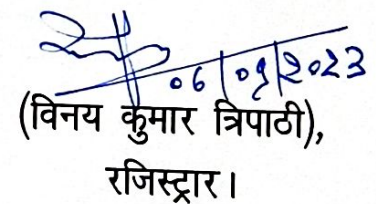 06/09/2023
(विनय कुमार त्रिपाठी),
रजिस्ट्रार।